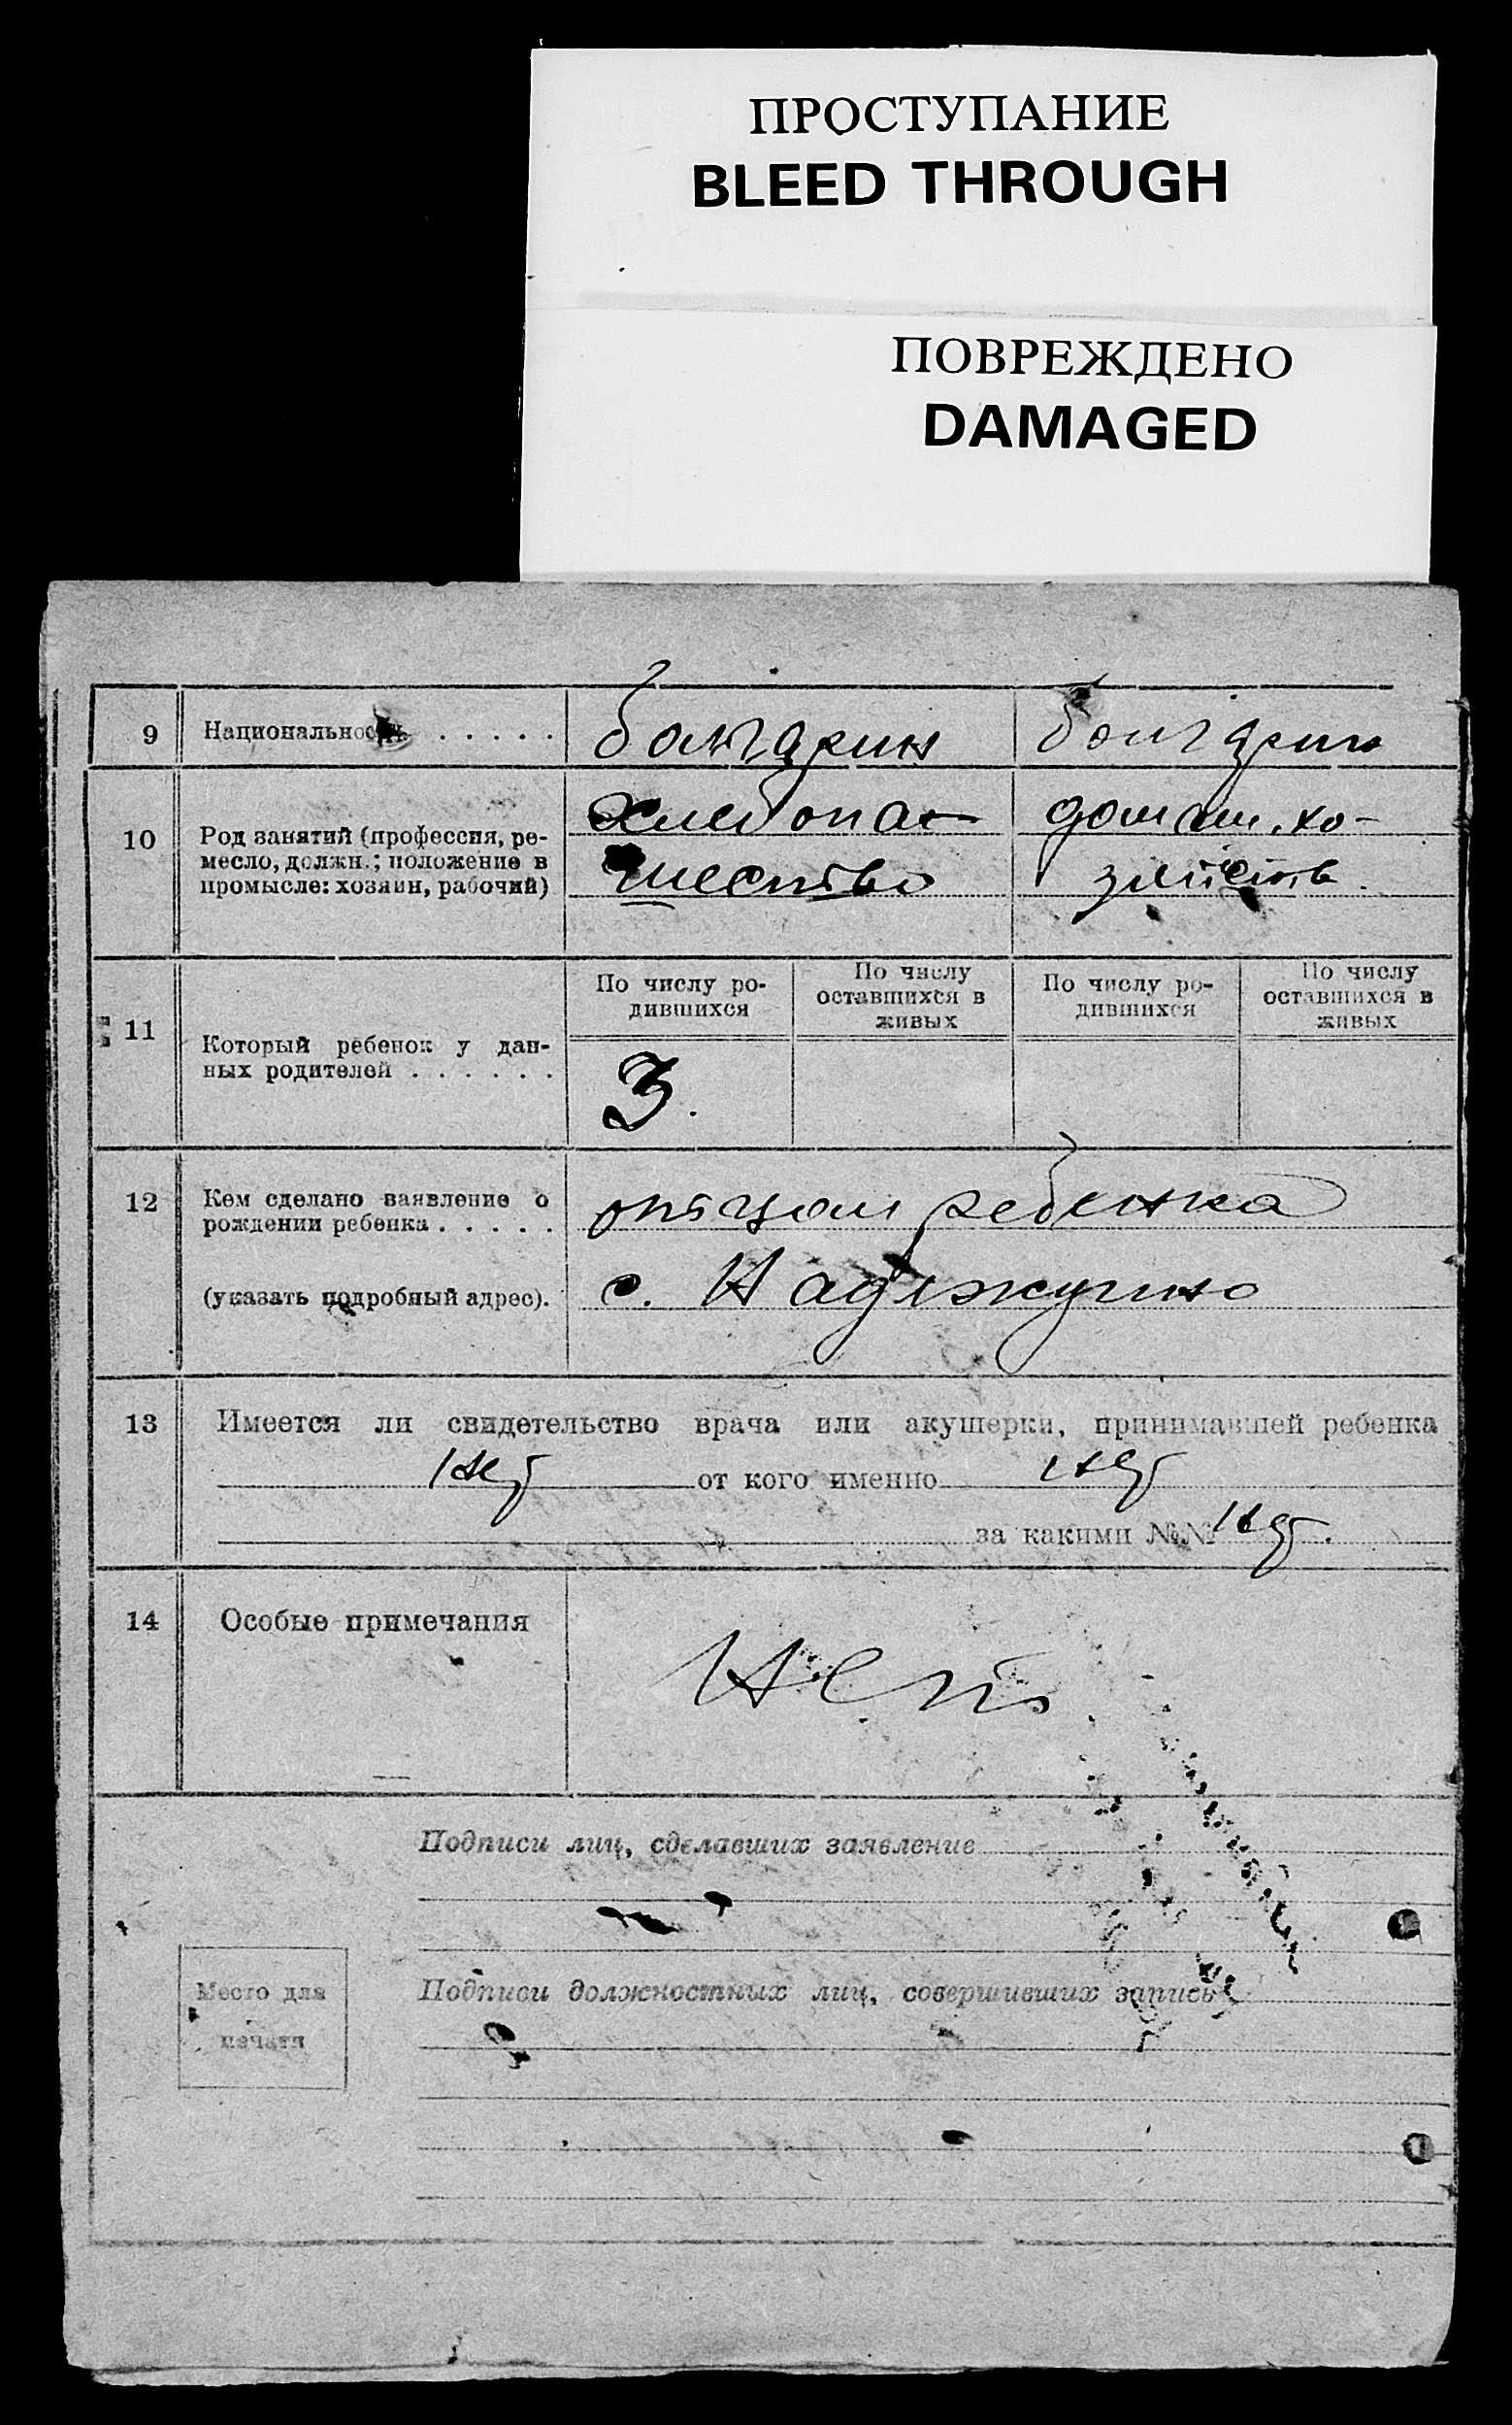 ПРОСТУПАНИЕ
BLEED THROUGH
ПОВРЕЖДЕНО
DAMAGED
9 Национальность . . . . . болгарин болгарин
10 Род занятий (профессия, ре-
месло, должн.; положение в
промысле: хозяин, рабочий)
хлебопа-
шество
домаш. хо-
зяйств.
11 Который ребенок у дан-
ных родителей . . . . . .
По числу ро-
дившихся
По числу
оставшихся в
живых
По числу ро-
дившихся
По числу
оставшихся в
живых
3.
12 Кем сделано заявление о
рождении ребенка . . . . .
отцом ребенка
(указать подробный адрес).
с.
13 Имеется ли свидетельство врача или акушерки, принимавшей ребенка
нет от кого именно нет
за какими №№ нет.
14 Особые примечания
нет
Подписи лиц, сделавших заявление
Место для
печати
Подписи должностных лиц, совершивших запись